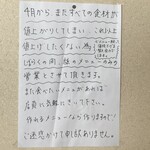 4月から、またすべての食材が
値上がりしてしまい、これ以上
値上げしたくない為
しばらくの間、
メニューのみの
営業とさせて頂きます。
また食べたいメニューがあれば
店員に気軽に言って下さい。
作れるメニューなら作りますので
ご迷惑かけて申し訳ありません。